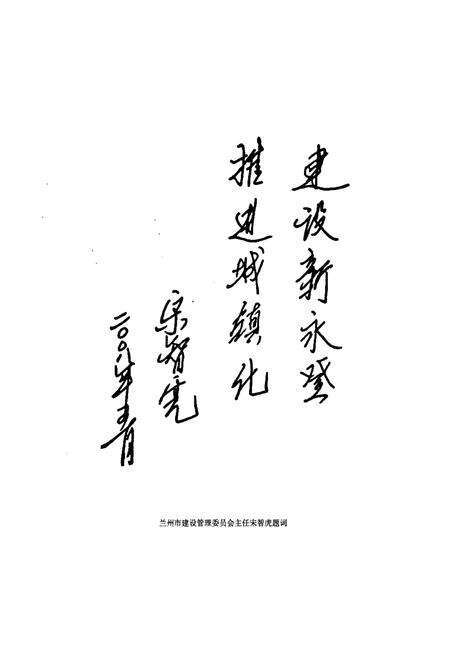 建设新永登
推进城镇化
宋智虎
二〇〇八年五月
兰州市建设管理委员会主任宋智虎题词